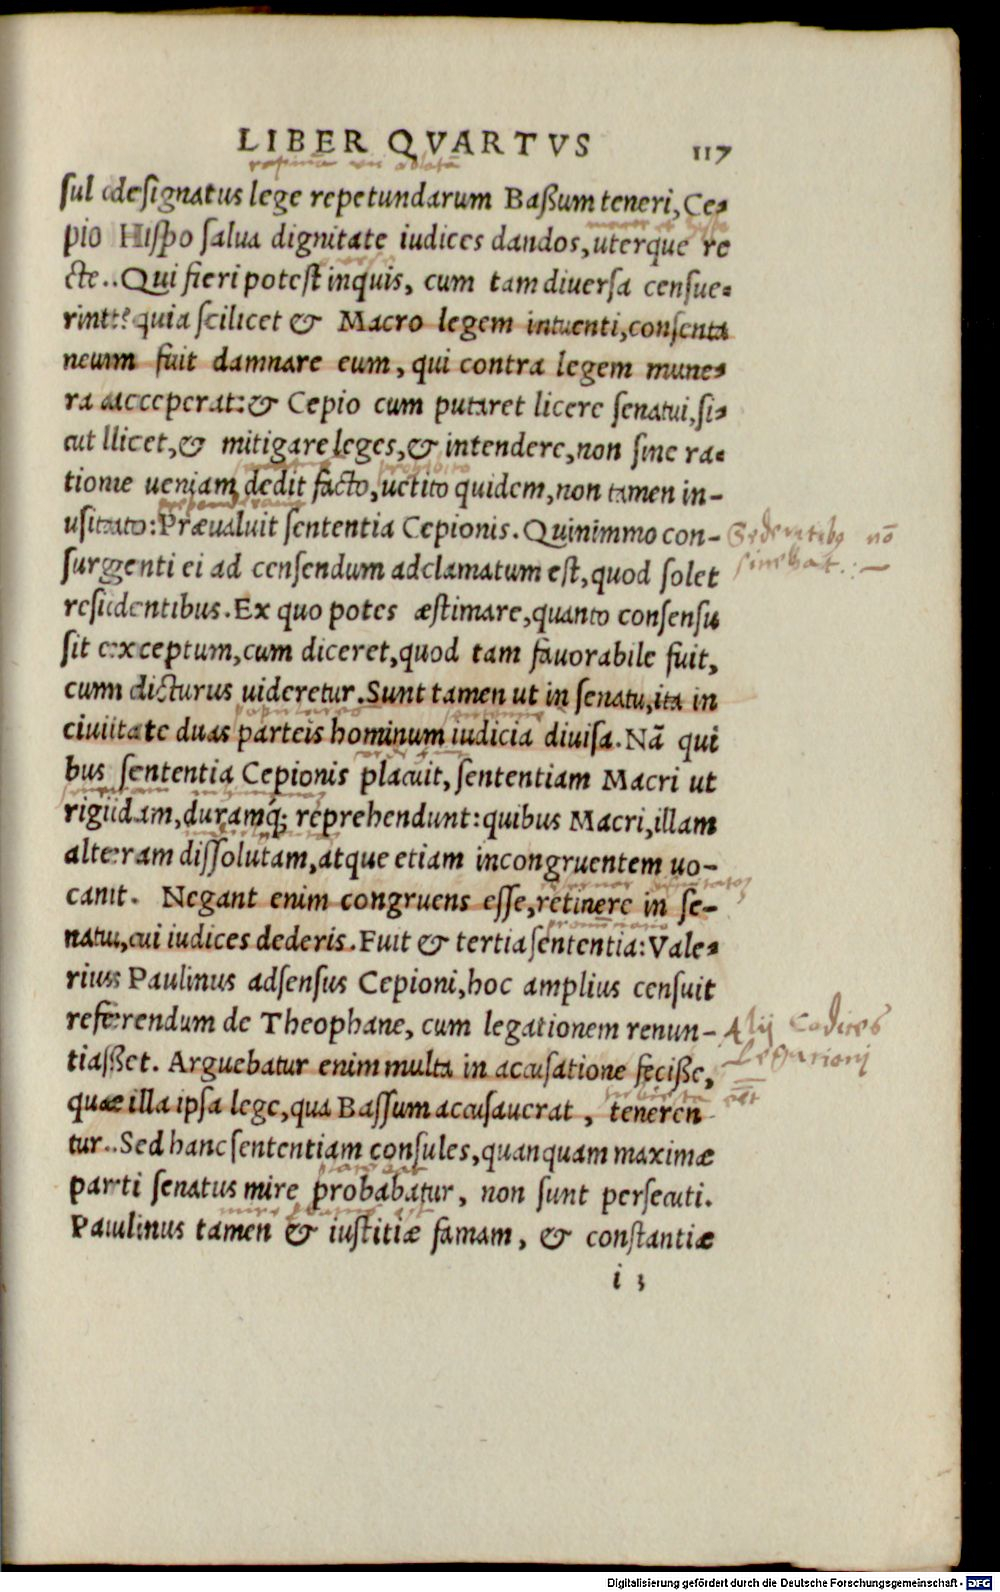 LIBER QVARTVS 117
sul designatus lege repetundarum Baßum teneri, Ce⸗
pio Hispo salua dignitate iudices dandos, uterque re
cte. Qui fieri potest inquis, cum tam diuersa censue⸗
rint? quia scilicet & Macro legem intuenti, consenta
neum fuit damnare eum, qui contra legem mune⸗
ra acceperat: & Cepio cum putaret licere senatui, si⸗
cut licet, & mitigare leges, & intendere, non sine ra⸗
tione ueniam dedit facto, uetito quidem, non tamen in-
usitato: Præualuit sententia Cepionis. Quinimmo con-
surgenti ei ad censendum adclamatum est, quod solet
residentibus. Ex quo potes æstimare, quanto consensu
sit exceptum, cum diceret, quod tam fauorabile fuit,
cum dicturus uideretur. Sunt tamen ut in senatu, ita in
ciuitate duas parteis hominum iudicia diuisa. Nã qui
bus sententia Cepionis placuit, sententiam Macri ut
rigidam, duramq́; reprehendunt: quibus Macri, illam
alteram dissolutam, atque etiam incongruentem uo-
cant. Negant enim congruens esse, retinere in se-
natu, cui iudices dederis. Fuit & tertia sententia: Vale⸗
rius Paulinus adsensus Cepioni, hoc amplius censuit
referendum de Theophane, cum legationem renun-
Alij Codices
tiaßet. Arguebatur enim multa in accusatione feciße,
quæ illa ipsa lege, qua Bassum accusauerat, teneren
tur. Sed hanc sententiam consules, quanquam maximæ
parti senatus mire probabatur, non sunt persecuti.
Paulinus tamen & iustitiæ famam, & constantiæ
i 3
Digitalisierung gefördert durch die Deutsche Forschungsgemeinschaft - DFG